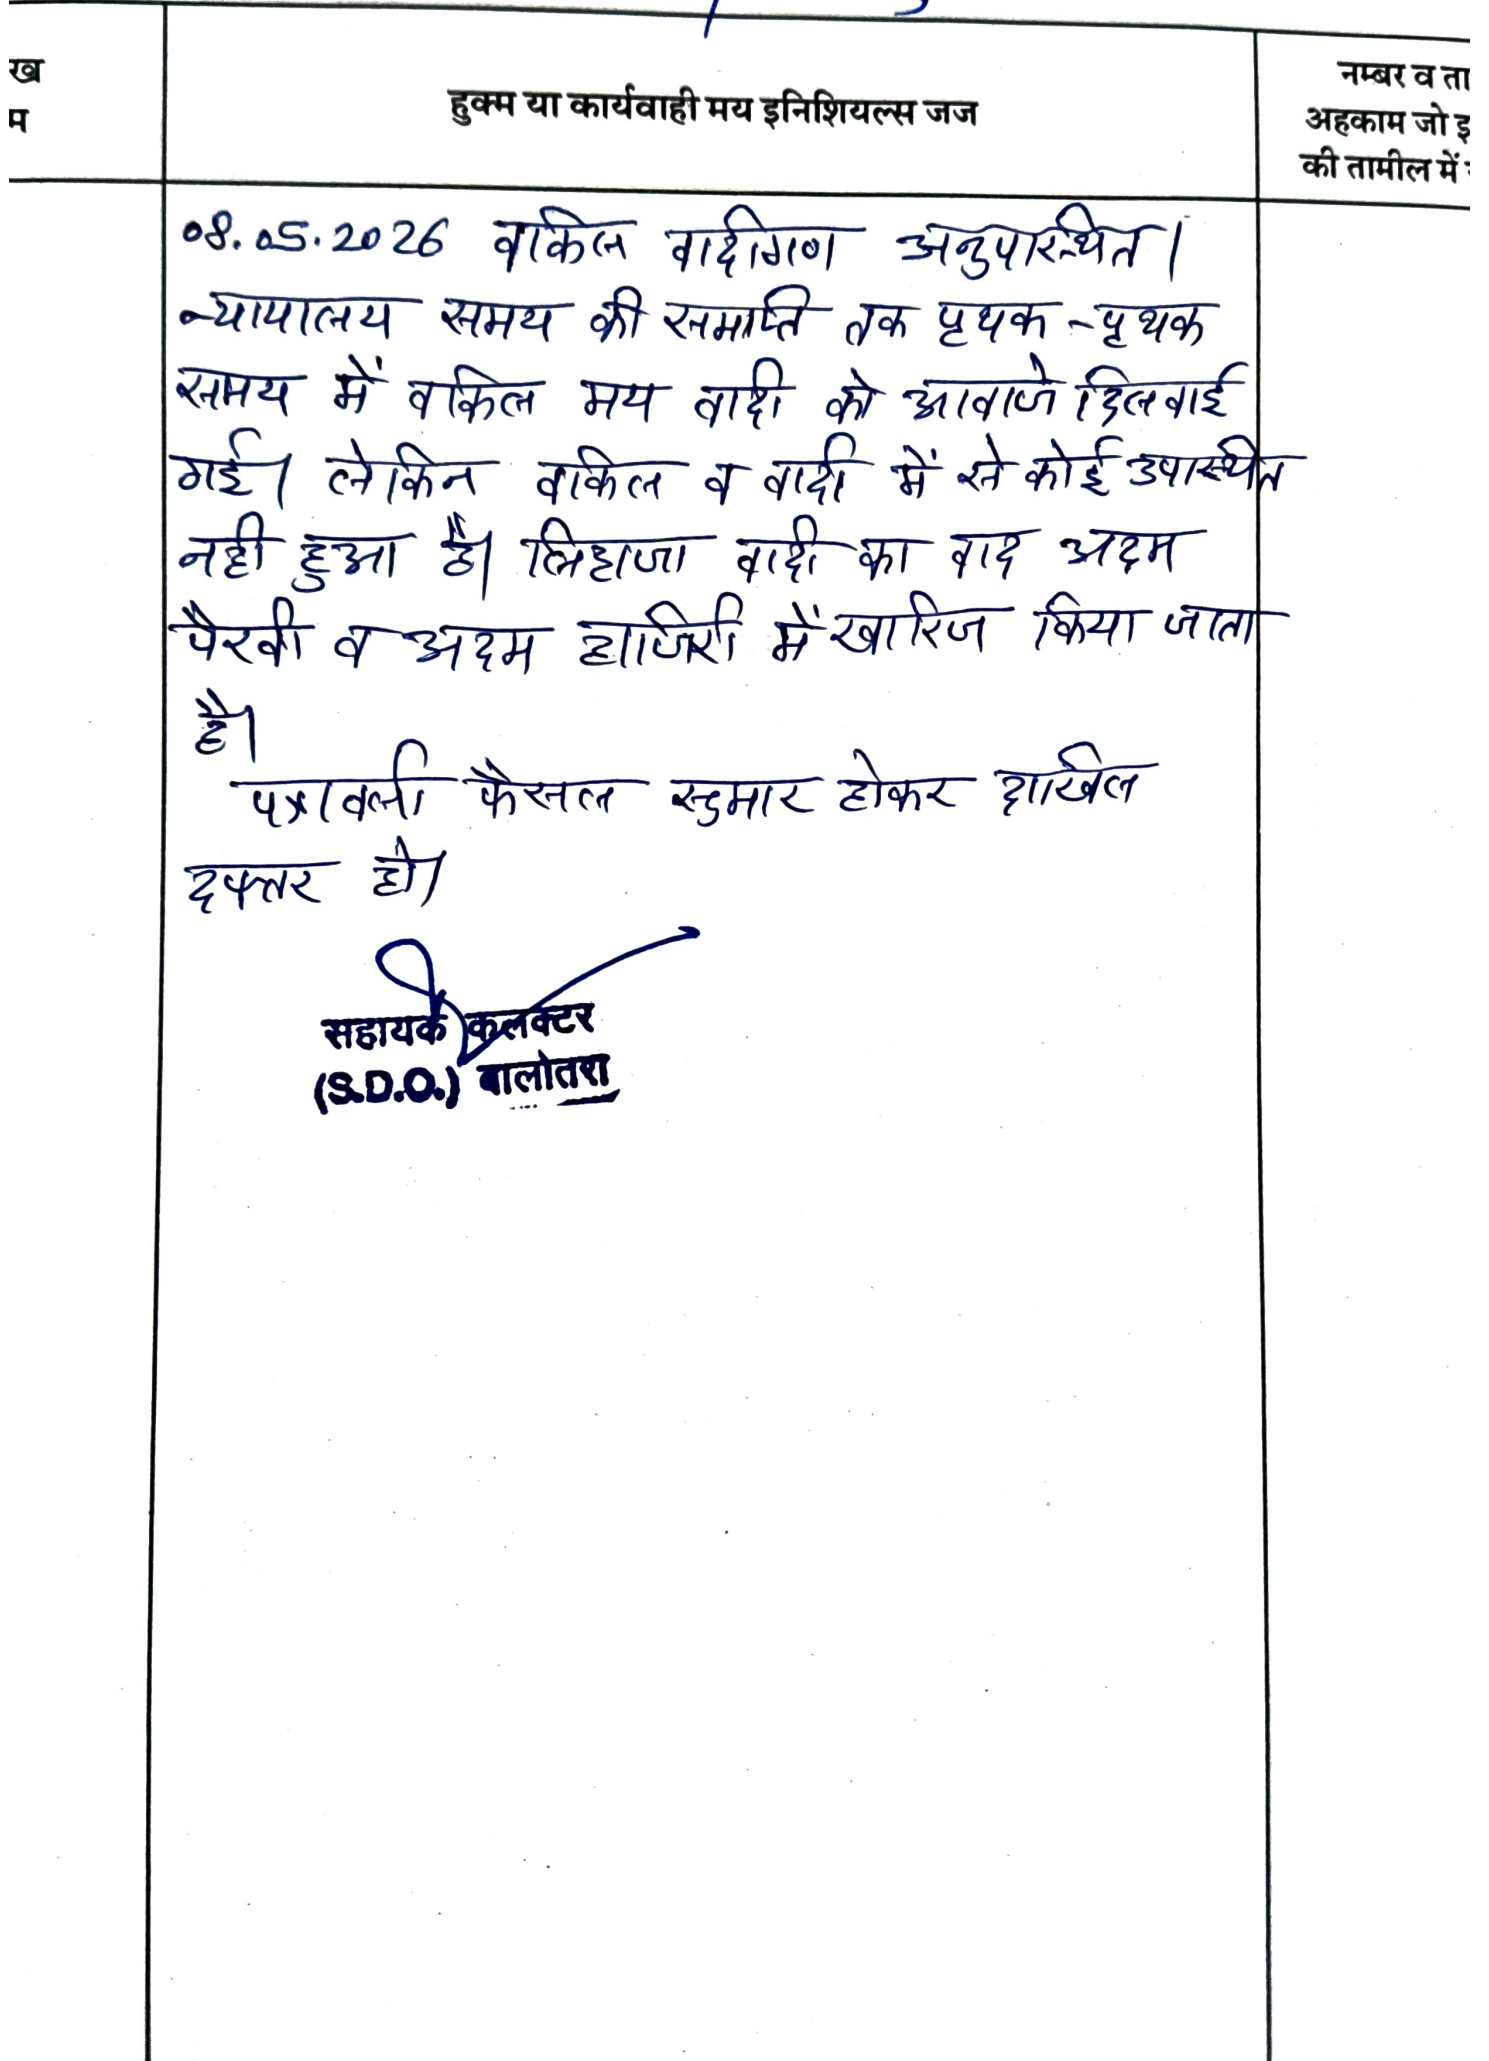 ख
म
हुक्म या कार्यवाही मय इनिशियल्स जज
नम्बर व ता
अहकाम जो इ
की तामील में
08.05.2026 वकिल वादीगण अनुपस्थित।
न्यायालय समय की समाप्ति तक पृथक-पृथक
समय में वकिल मय वादी को आवाजे दिलवाई
गई। लेकिन वकिल व वादी में से कोई उपस्थित
नही हुआ है। लिहाजा वादी का वाद अदम
पैरवी व अदम हाजिरी में खारिज किया जाता
है।
पत्रावली फैसल सुमार होकर दाखिल
दफ्तर हो।
सहायक कलक्टर
(S.D.O.) बालोतरा